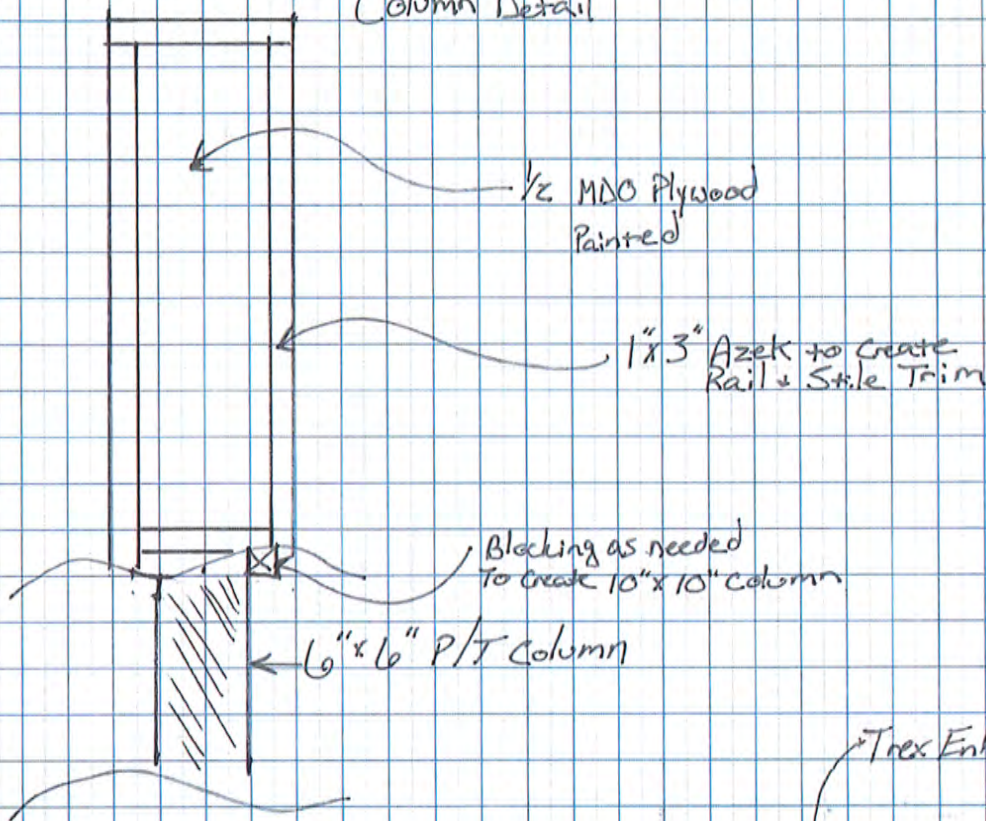 Column Detail
1/2 MDO Plywood
Painted
1"x 3" Azek to Create
Rail + Stile Trim
Blocking as needed
To Create 10"x 10" Column
6"x 6" P/T Column
Trex